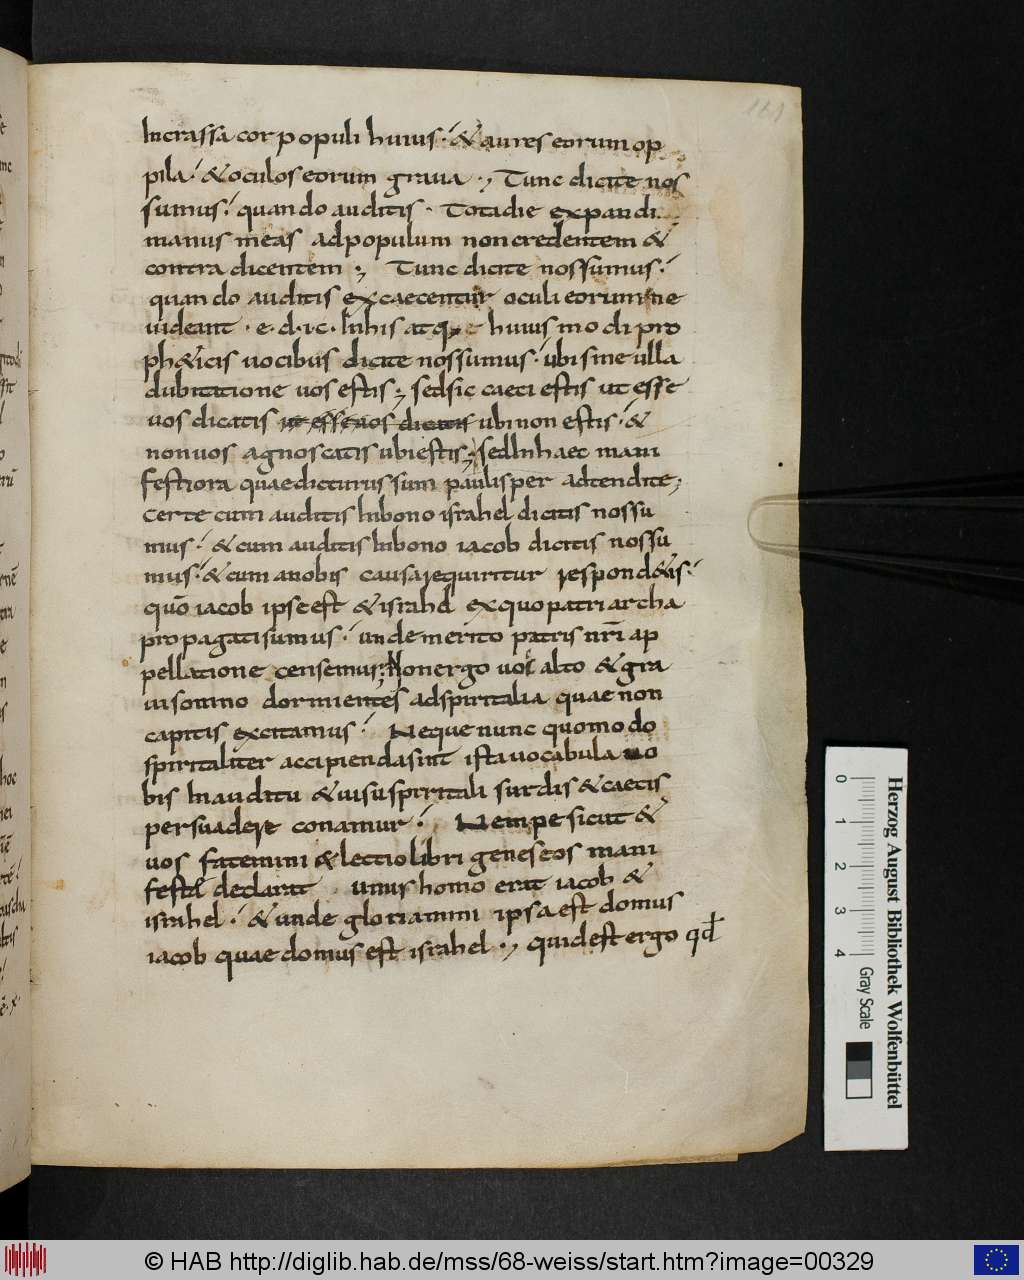 161
Incrassa cor populi huius ./ & aures eorum op
pila ./ & oculos eorum graua ·, Tunc dicite nos
sumus ./ quando auditis · Tota die expandi
manus meas ad populum non credentem &
contra dicentem ·, Tunc dicite nos sumus ./
quando auditis excaecentur oculi eorum ne
uideant · e · d · i · c · In his atque huius modi pro
ph&icis uocibus dicite nos sumus ./ ubi sine ulla
dubitatione uos estis ; sed sic caeci estis ut esse
uos dicatis ut esse uos dicatis ubi non estis ./ &
non uos agnoscatis ubi estis ; sed In haec mani
festiora quae dicturus sum paulisper adtendite ;
Certe cum auditis In bono israhel dicitis nos su
mus ./ & cum auditis In bono iacob dicitis nos su
mus ./ & cum a nobis causa requiritur respond&is ./
quō iacob ipse est & israhel ex quo patriarcha
propagati sumus ./ unde merito patris nr̄i ap
pellatione censemus ; Non ergo uos alto & gra
ui somno dormientes ad spiritalia quae non
capitis excitamus ./ Neque nunc quomodo
spiritaliter accipienda sint ista uocabula uo
bis In auditu & uisu spiritali surdis & caecis
persuadere conamur ./ Nempe sicut &
uos fatemini & lectio libri geneseos mani
feste declarat unus homo erat iacob &
israhel ./ & unde gloriamini ipsa est domus
iacob quae domus est israhel ·, quid est ergo qđ
Herzog August Bibliothek Wolfenbüttel
0 1 2 3 4 Gray Scale
© HAB http://diglib.hab.de/mss/68-weiss/start.htm?image=00329